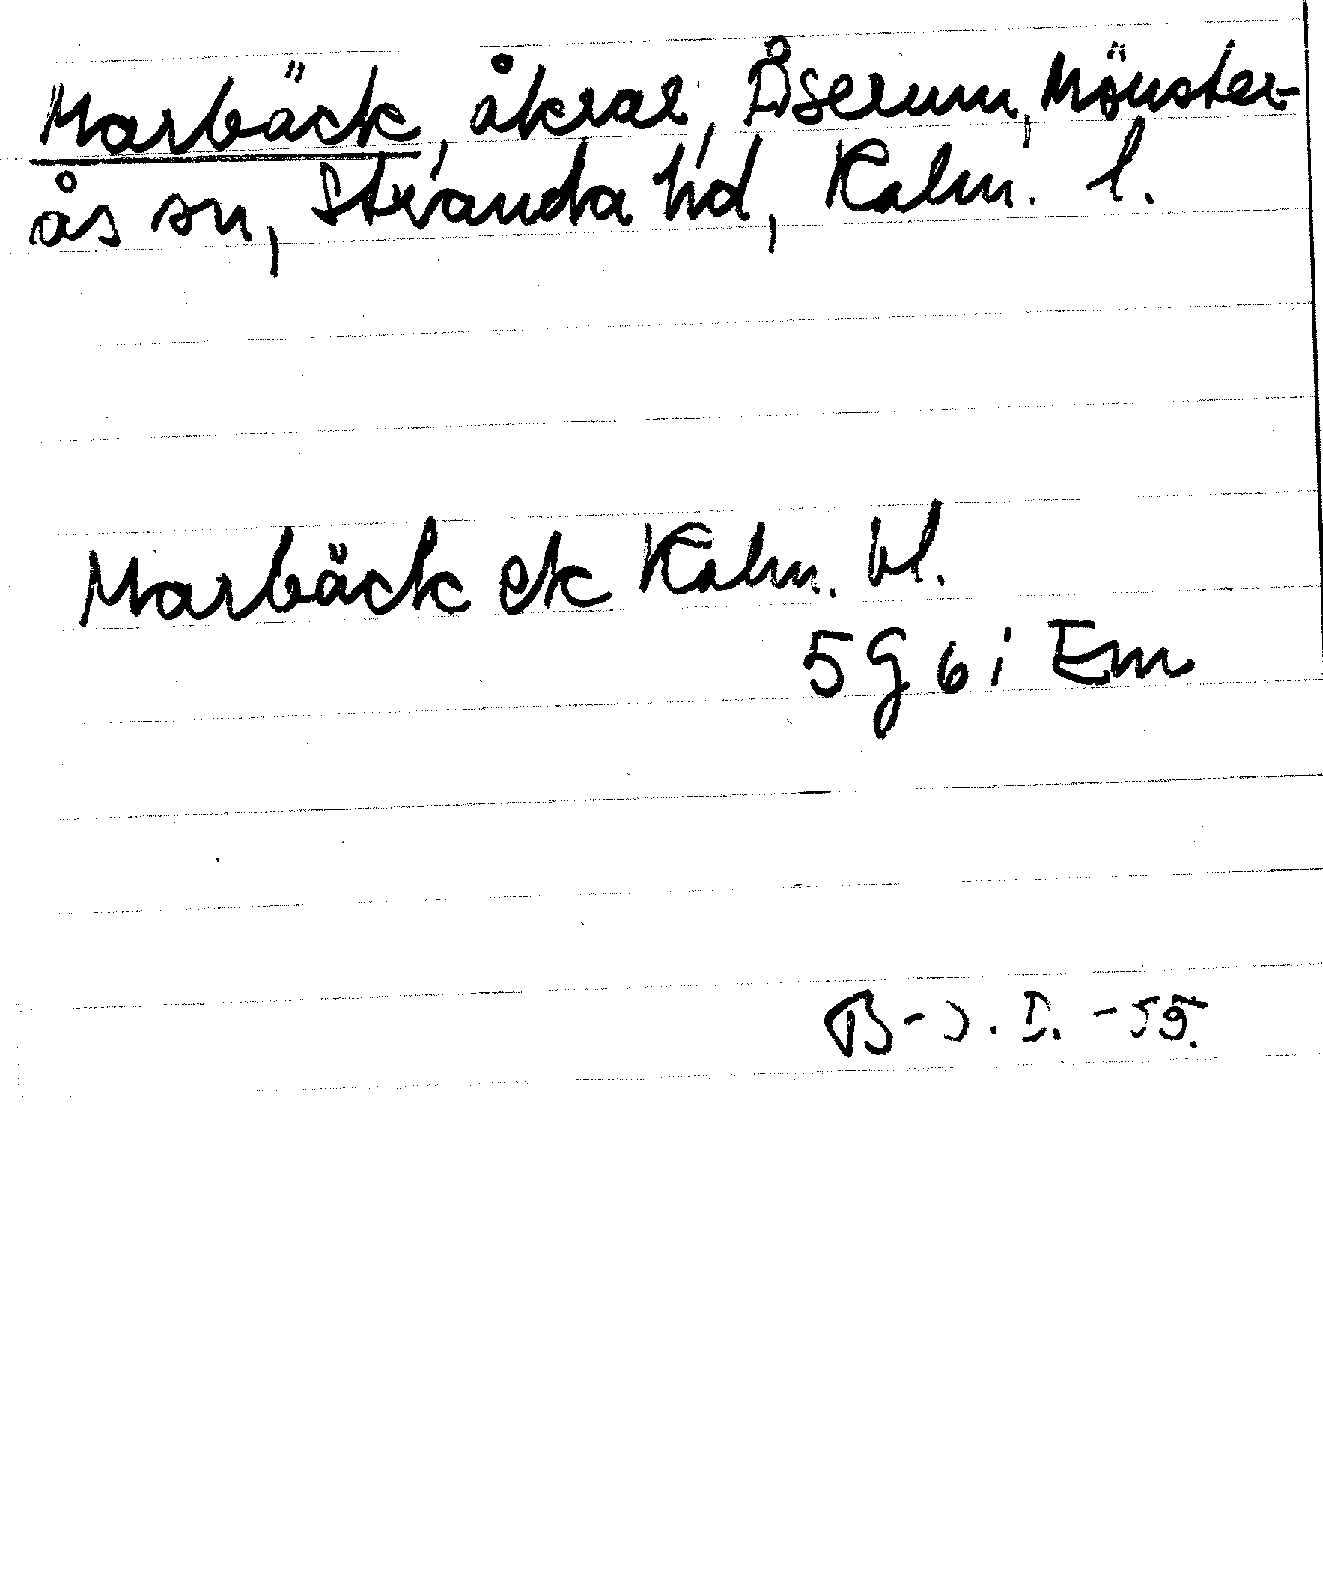 Marbäck, åkrar, Åserum, Mönster-
ås sn, Stranda hd, Kalm. l.
Marbäck ek Kalm. bl.
5 G 6 i Em
B-J. I. -55.